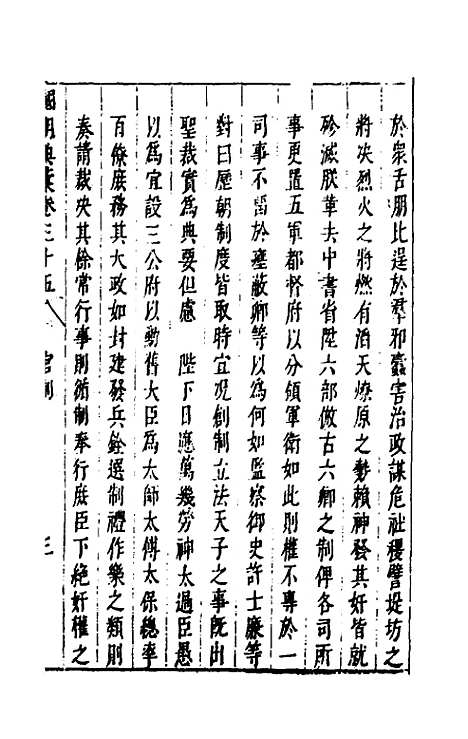 於衆舌朋比逞於羣邪蠧害治政謀危社稷譬堤坊之
將决烈火之將燃有滔天燎原之勢賴神發其奸皆就
殄滅朕革去中書省陞六部倣古六卿之制俾各司所
事更置五軍都督府以分領軍衛如此則權不專於一
司事不留於壅蔽卿等以爲何如監察御史許士廉等
對曰歷朝制度皆取時宜况創制立法天子之事旣出
聖裁實爲典要但慮 陛下日應萬幾勞神太過臣愚
以爲宜設三公府以勳舊大臣爲太師太傅太保總率
百僚庶務其大政如封建發兵銓選制禮作樂之類則
奏請裁央其餘常行事則循制奉行庶臣下絶奸權之
國朝典彙卷三十五 官制 三